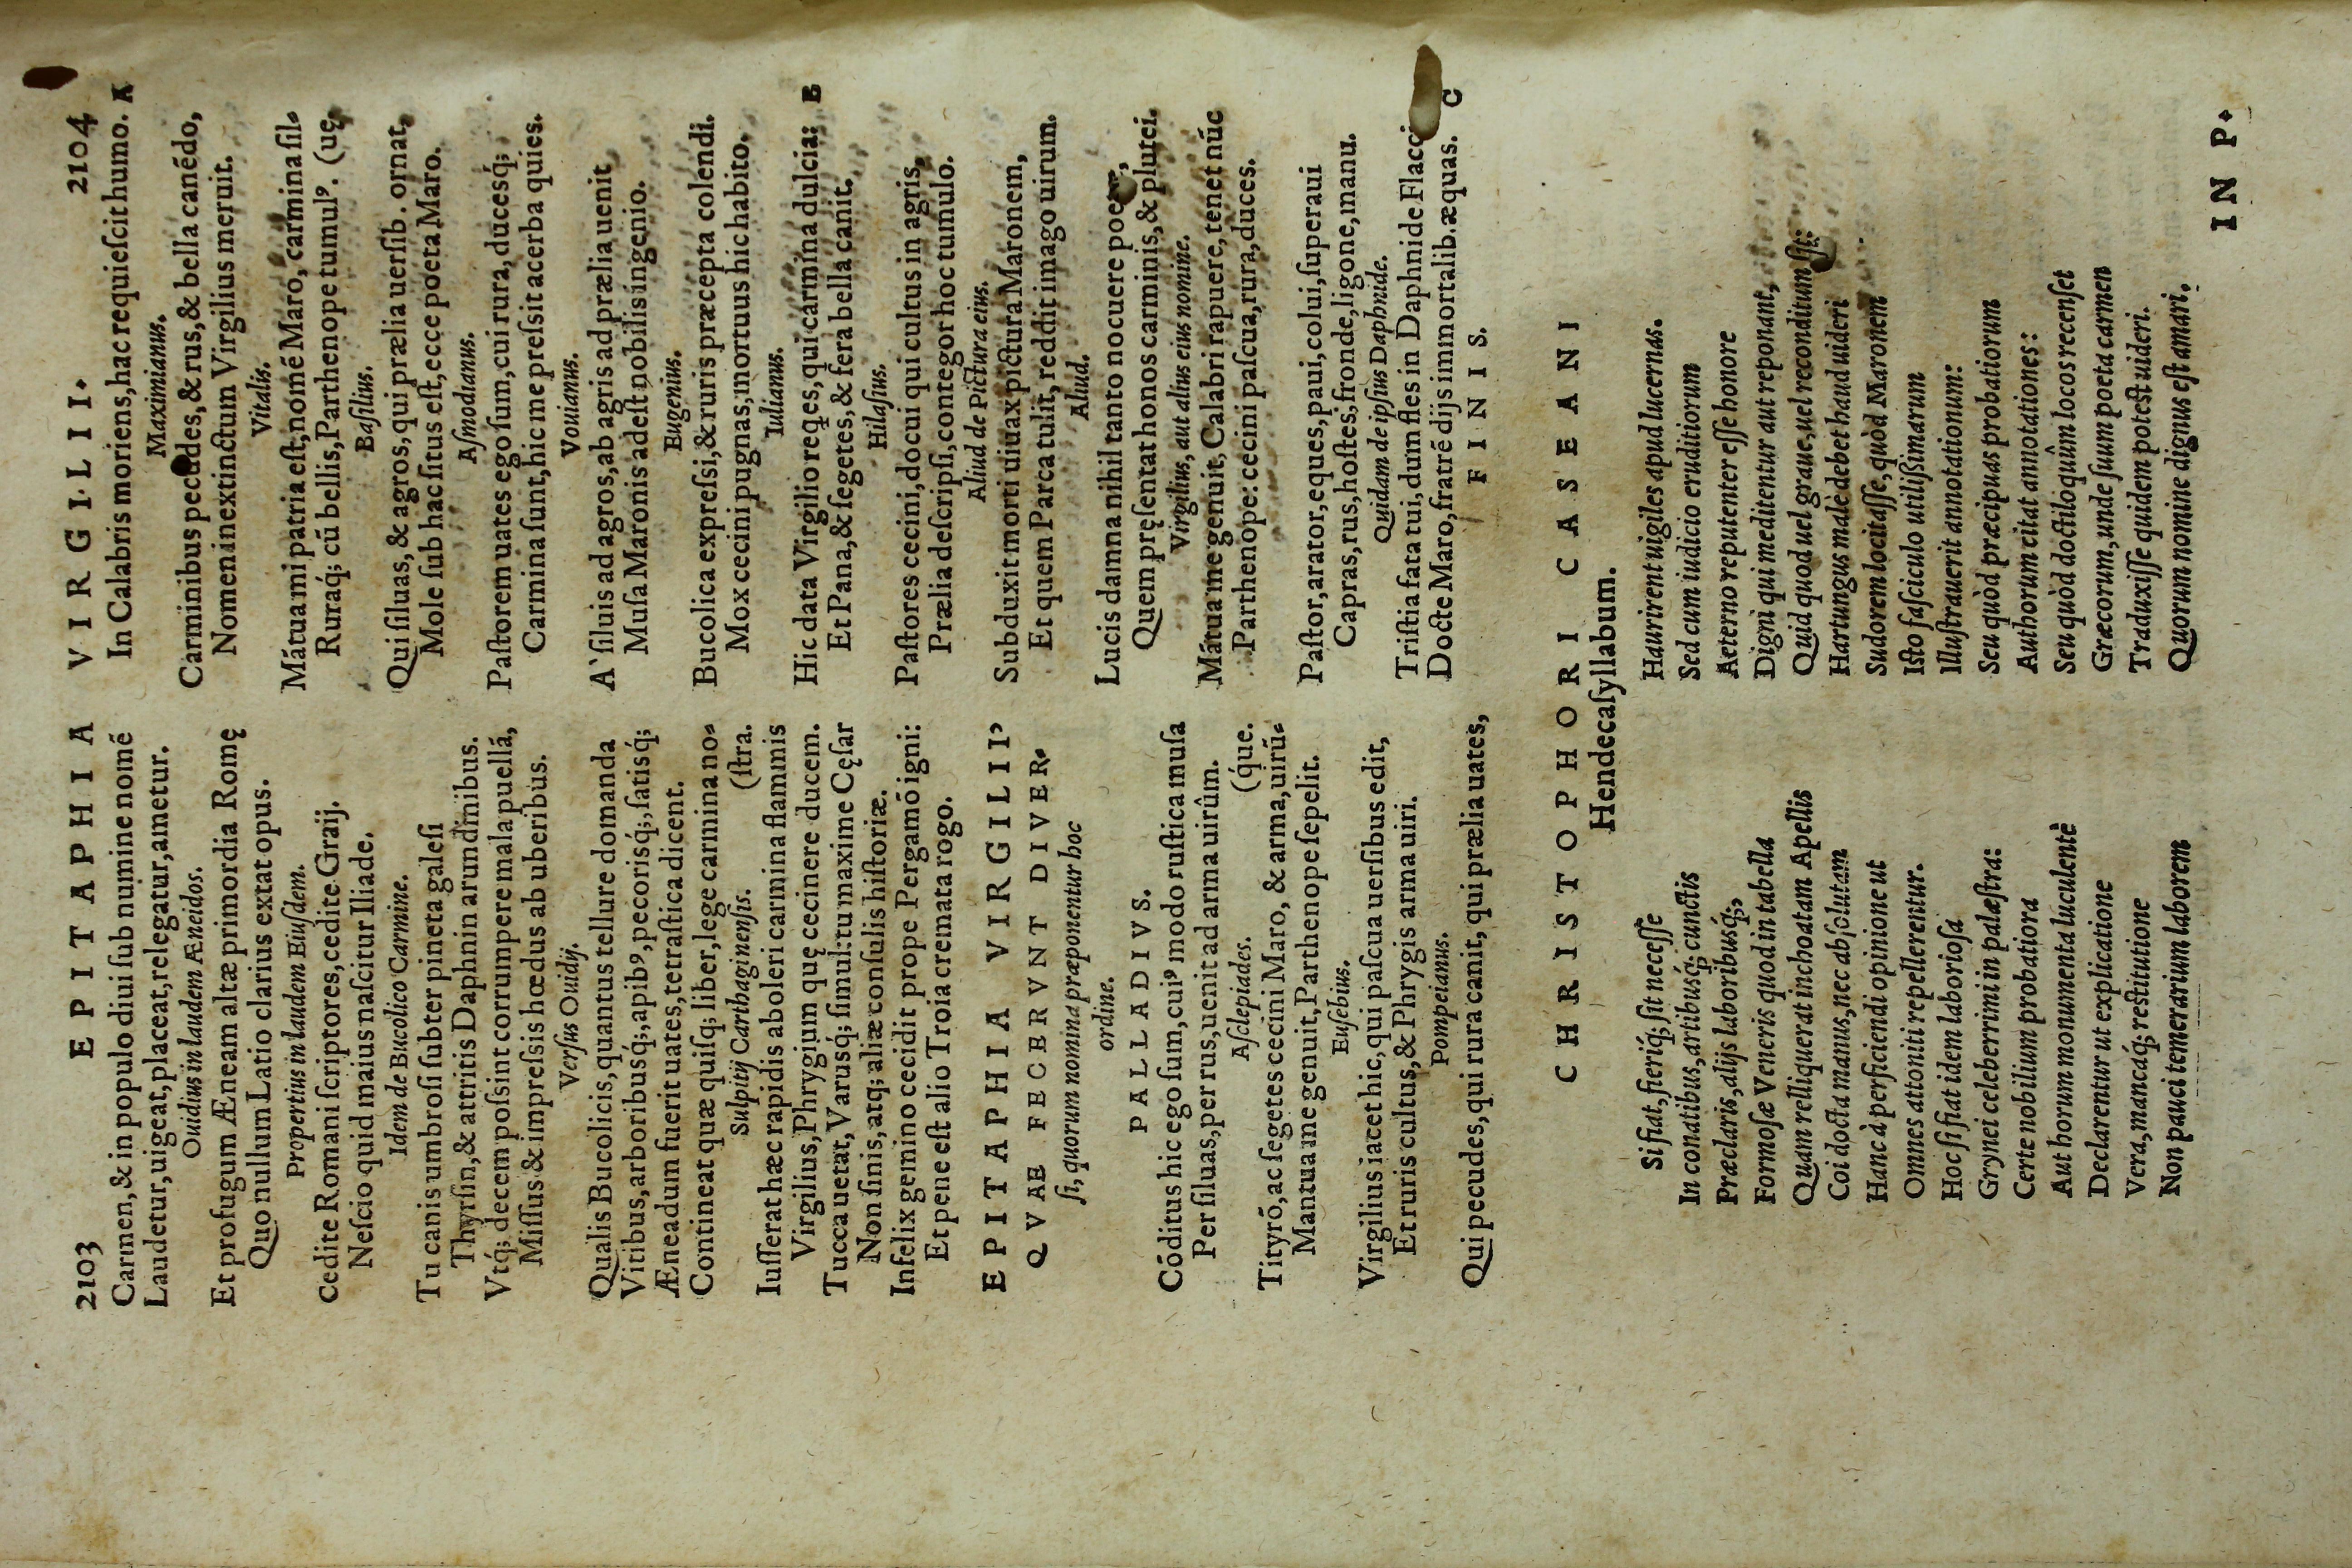 2103 EPITAPHIA VIRGILII. 2104
Carmen,& in populo diui ſub numine nomē
Laudetur,uigeat,placeat,relegatur,ametur.
Ouidius in laudem Æneidos.
Et profugum Æneam altæ primordia Romę
Quo nullum Latio clarius extat opus.
Propertius in laudem Eiuſdem.
Cedite Romani ſcriptores,cedite Graij.
Neſcio quid maius naſcitur Iliade.
Idem de Bucolico Carmine.
Tu canis umbroſi ſubter pineta galeſi
Thyrſin,& attritis Daphnin arundinibus.
Vtq́; decem poſsint corrumpere mala puellá,
Miſſus & impreſsis hœdus ab uberibus.
Verſus Ouidij.
Qualis Bucolicis,quantus tellure domanda
Vitibus,arboribusq́;,apibꝰ,pecorisq́;,ſatisq́;
Æneadum fuerit uates,tetraſtica dicent.
Contineat quæ quiſq; liber,lege carmina no⸗
Sulpitij Carthaginenſis. (ſtra.
Iuſſerat hæc rapidis aboleri carmina flammis
Virgilius,Phrygium quę cecinere ducem.
Tucca uetat,Varusq́; ſimul:tu maxime Cęſar
Non ſinis,atq; aliæ conſulis hiſtoriæ.
Infelix gemino cecidit prope Pergamō igni:
Et pene eſt alio Troia cremata rogo.
EPITAPHIA VIRGILIIꝰ
QVAE FECERVNT DIVER⸗
ſi, quorum nomina præponentur hoc
ordine.
PALLADIVS.
Códitus hic ego ſum,cuiꝰ modo ruſtica muſa
Per ſiluas,per rus,uenit ad arma uirûm.
Aſclepiades. (q́ue.
Tityrō,ac ſegetes cecini Maro, & arma,uirū⸗
Mantua me genuit,Parthenope ſepelit.
Euſebius.
Virgilius iacet hic,qui paſcua uerſibus edit,
Et ruris cultus,& Phrygis arma uiri.
Pompeianus.
Qui pecudes,qui rura canit, qui prælia uates,
In Calabris moriens,hac requieſcit humo. A
Maximianus.
Carminibus pecudes,& rus,& bella canédo,
Nomen inextinctum Virgilius meruit.
Vitalis.
Mátua mi patria eſt,nomé Maro, carmina ſil⸗
Ruraq́; cū bellis,Parthenope tumulꝰ. (uę,
Baſilius.
Qui ſiluas,& agros,qui prælia uerſib. ornat,
Mole ſub hac ſitus eſt,ecce poeta Maro.
Aſmodianus.
Paſtorem uates ego ſum,cui rura,ducesq́;
Carmina ſunt,hic me preſsit acerba quies.
Vouianus.
A`ſiluis ad agros,ab agris ad prælia uenit
Muſa Maronis adeſt nobilis ingenio.
Eugenius.
Bucolica expreſsi,& ruris præcepta colendi.
Mox cecini pugnas,mortuus hic habito,
Iulianus.
Hic data Virgilio reqẹs,qui carmina dulcia: B
Et Pana,& ſegetes,& fera bella canit.
Hilaſius.
Paſtores cecini,docui qui cultus in agris,
Prælia deſcripſi,contegor hoc tumulo.
Aliud de Pictura eius.
Subduxit morti uiuax pictura Maronem,
Et quem Parca tulit,reddit imago uirum.
Aliud.
Lucis damna nihil tanto nocuere
Quem pręſentat honos carminis,& plutei.
Virgilius, aut alius eius nomine.
Mátua me genuit,Calabri rapuere,tenet nūc
Parthenope: cecini paſcua,rura,duces.
Paſtor,arator,eques,paui,colui,ſuperaui
Capras,rus,hoſtes,fronde,ligone,manu.
Quidam de ipſius Daphnide.
Triſtia fata tui,dum fles in Daphnide Flacci
Docte Maro,fratré dijs immortalib.æquas. C
FINIS.
CHRISTOPHORI CASEANI
Hendecaſyllabum.
Si fiat,fieriq́; ſit neceſſe
In conatibus,artibusq́; cunctis
Præclaris,alijs laboribusq́;,
Formoſæ Veneris quod in tabella
Quam relliquerat inchoatam Apellis
Coi docta manus,nec abſolutam
Hanc à perficiendi opinione ut
Omnes attoniti repellerentur.
Hoc ſi fiat idem laborioſa
Grynei celeberrimi in palæſtra:
Certe nobilium probatiora
Aut horum monumenta luculentè
Declarentur ut explicatione
Vera,mancaq́; reſtitutione
Non pauci temerarium laborem
Haurirent uigiles apud lucernas.
Sed cum iudicio eruditiorum
Aeterno reputenter eſſe honore
Digni qui meditentur aut reponant,
Quid quod uel graue,uel reconditum ſit:
Hartungus malè debet haud uideri
Sudorem locitaſſe,quòd Maronem
Iſto faſciculo utiliſsimarum
Illuſtrauerit annotationum:
Seu quòd præcipuas probatiorum
Authorum citat annotationes:
Seu quòd doctiloquûm locos recenſet
Græcorum,unde ſuum poeta carmen
Traduxiſſe quidem poteſt uideri.
Quorum nomine dignus eſt amari,
IN P.